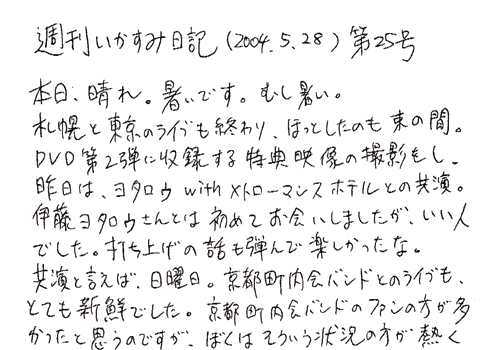 週刊いかすみ日記 (2004.5.28) 第25号
本日、晴れ。暑いです。むし暑い。
札幌と東京のライブも終わり、ほっとしたのも束の間。
DVD第2弾に収録する特典映像の撮影をし、
昨日は、ヨタロウ with メトローマンスホテルとの共演。
伊藤ヨタロウさんとは初めてお会いしましたが、いい人
でした。打ち上げの話も弾んで楽しかったな。
共演と言えば、日曜日。京都町内会バンドとのライブも、
とても新鮮でした。京都町内会バンドのファンの方が多
かったと思うのですが、ぼくはそういう状況の方が熱く